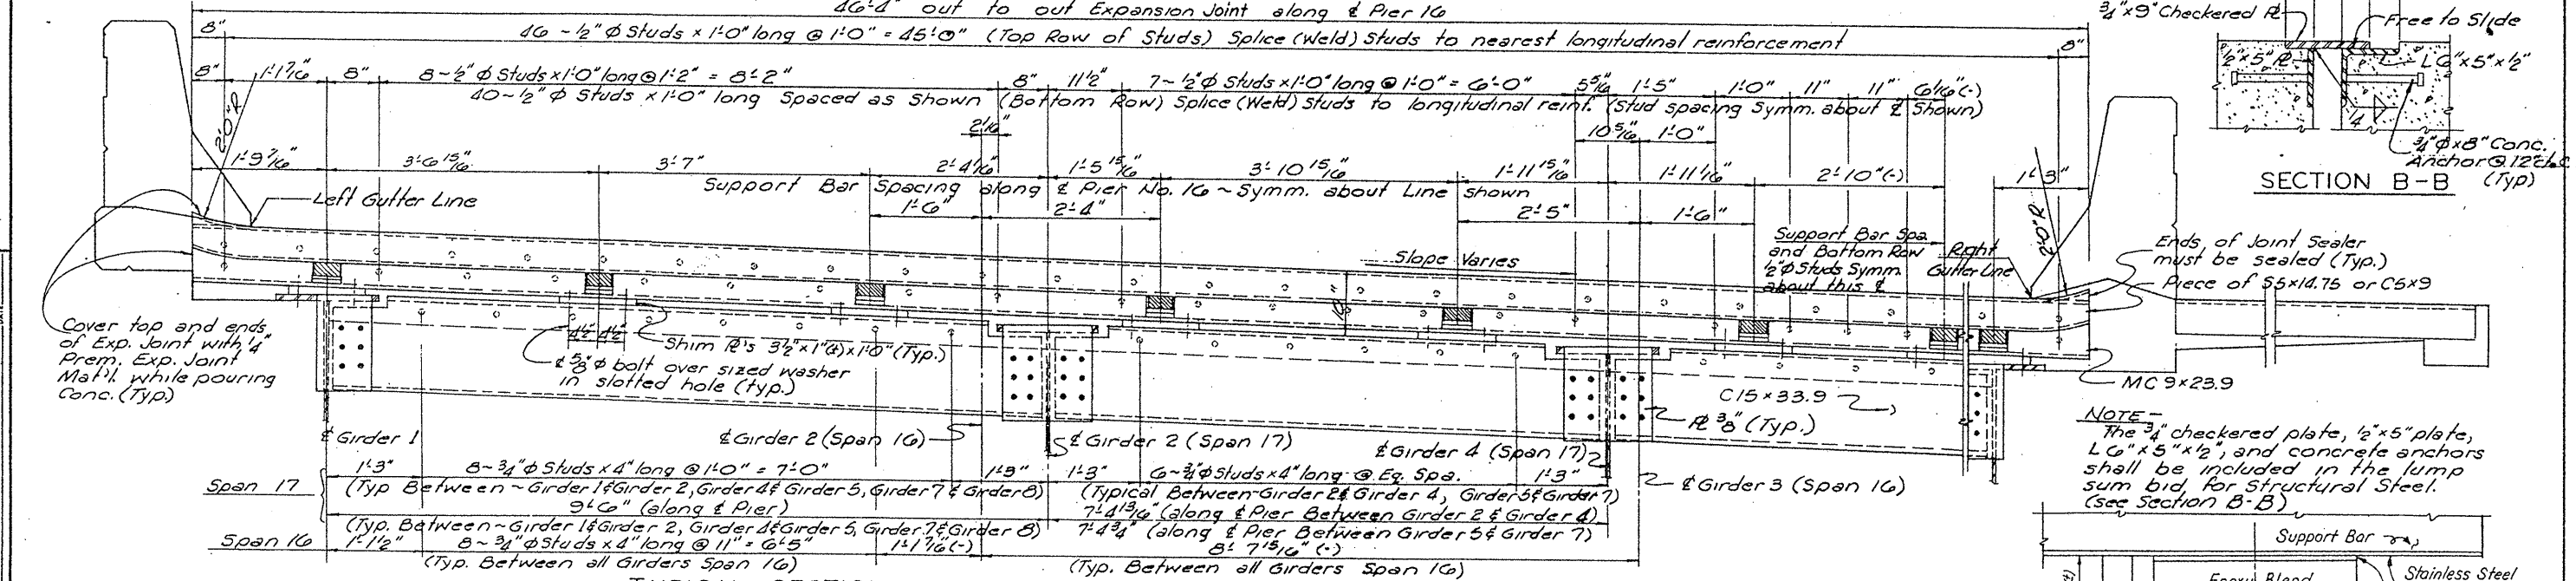 46'-4" out to out Expansion Joint along ℄ Pier 16
8"
46 ~ 1/2" ϕ Studs × 1'-0" long @ 1'-0" = 45'-0" (Top Row of Studs) Splice (Weld) Studs to nearest longitudinal reinforcement
8"
8" 1'-1 7/16" 8" 8 ~ 1/2" ϕ Studs × 1'-0" long @ 1'-2" = 8'-2" 8" 11 1/2" 7 ~ 1/2" ϕ Studs × 1'-0" long @ 1'-0" = 6'-0" 5 5/16" 1'-5" 1'-0" 11" 11" 6 1/16"(-)
40 ~ 1/2" ϕ Studs × 1'-0" long Spaced as Shown (Bottom Row) Splice (Weld) Studs to longitudinal reinf. (Stud spacing Symm. about ℄ Shown)
2 1/16"
10 5/16" 1'-0"
2'-0" R
1'-9 7/16" 3'-6 15/16" 3'-7" 2'-4 1/16" 1'-5 15/16" 3'-10 15/16" 1'-11 15/16" 1'-11 1/16" 2'-10"(-) 1'-3"
Support Bar Spacing along ℄ Pier No. 16 ~ Symm. about Line Shown
1'-6" 2'-4" 2'-5" 1'-6"
2'-0" R
Left Gutter Line
Slope Varies
Support Bar Spa.
and Bottom Row
1/2" ϕ Studs Symm.
about this ℄
Right
Gutter Line
Ends of Joint Sealer
must be sealed (Typ.)
Piece of S5×14.75 or C5×9
Cover top and ends
of Exp. Joint with 1/4"
Prem. Exp. Joint
Mat'l. while pouring
Conc. (Typ.)
4 1/2" 4 1/2"
Shim ℞'s 3 1/2" × 1"(±) × 1'-0" (Typ.)
℄ 5/8" ϕ bolt over sized washer
in slotted hole (typ.)
C15×33.9
℞ 3/8" (Typ.)
MC 9×23.9
℄ Girder 1
℄ Girder 2 (Span 16)
℄ Girder 2 (Span 17)
℄ Girder 4 (Span 17)
℄ Girder 3 (Span 16)
Span 17
1'-3" 8 ~ 3/4" ϕ Studs × 4" long @ 1'-0" = 7'-0" 1'-3" 1'-3" 6 ~ 3/4" ϕ Studs × 4" long @ Eq. Spa. 1'-3"
(Typ. Between ~ Girder 1 & Girder 2, Girder 4 & Girder 5, Girder 7 & Girder 8) (Typical Between Girder 2 & Girder 4, Girder 5 & Girder 7)
9'-6" (along ℄ Pier) 7'-4 13/16" (along ℄ Pier Between Girder 2 & Girder 4)
(Typ. Between ~ Girder 1 & Girder 2, Girder 4 & Girder 5, Girder 7 & Girder 8) 7'-4 3/4" (along ℄ Pier Between Girder 5 & Girder 7)
Span 16
1'-1 1/2" 8 ~ 3/4" ϕ Studs × 4" long @ 11" = 6'-5" 1'-1 7/16"(-) 8'-7 15/16"(-)
(Typ. Between all Girders Span 16) (Typ. Between all Girders Span 16)
3/4" × 9" Checkered ℞
Free to Slide
1/2" × 5" ℞
L 6" × 5" × 1/2"
1/4
3/4" ϕ × 8" Conc.
Anchor @ 12" c.c.
(Typ)
SECTION B-B
NOTE -
The 3/4" checkered plate, 1/2" × 5" plate,
L 6" × 5" × 1/2", and concrete anchors
shall be included in the lump
sum bid for Structural Steel.
(see Section B-B)
Support Bar
Stainless Steel